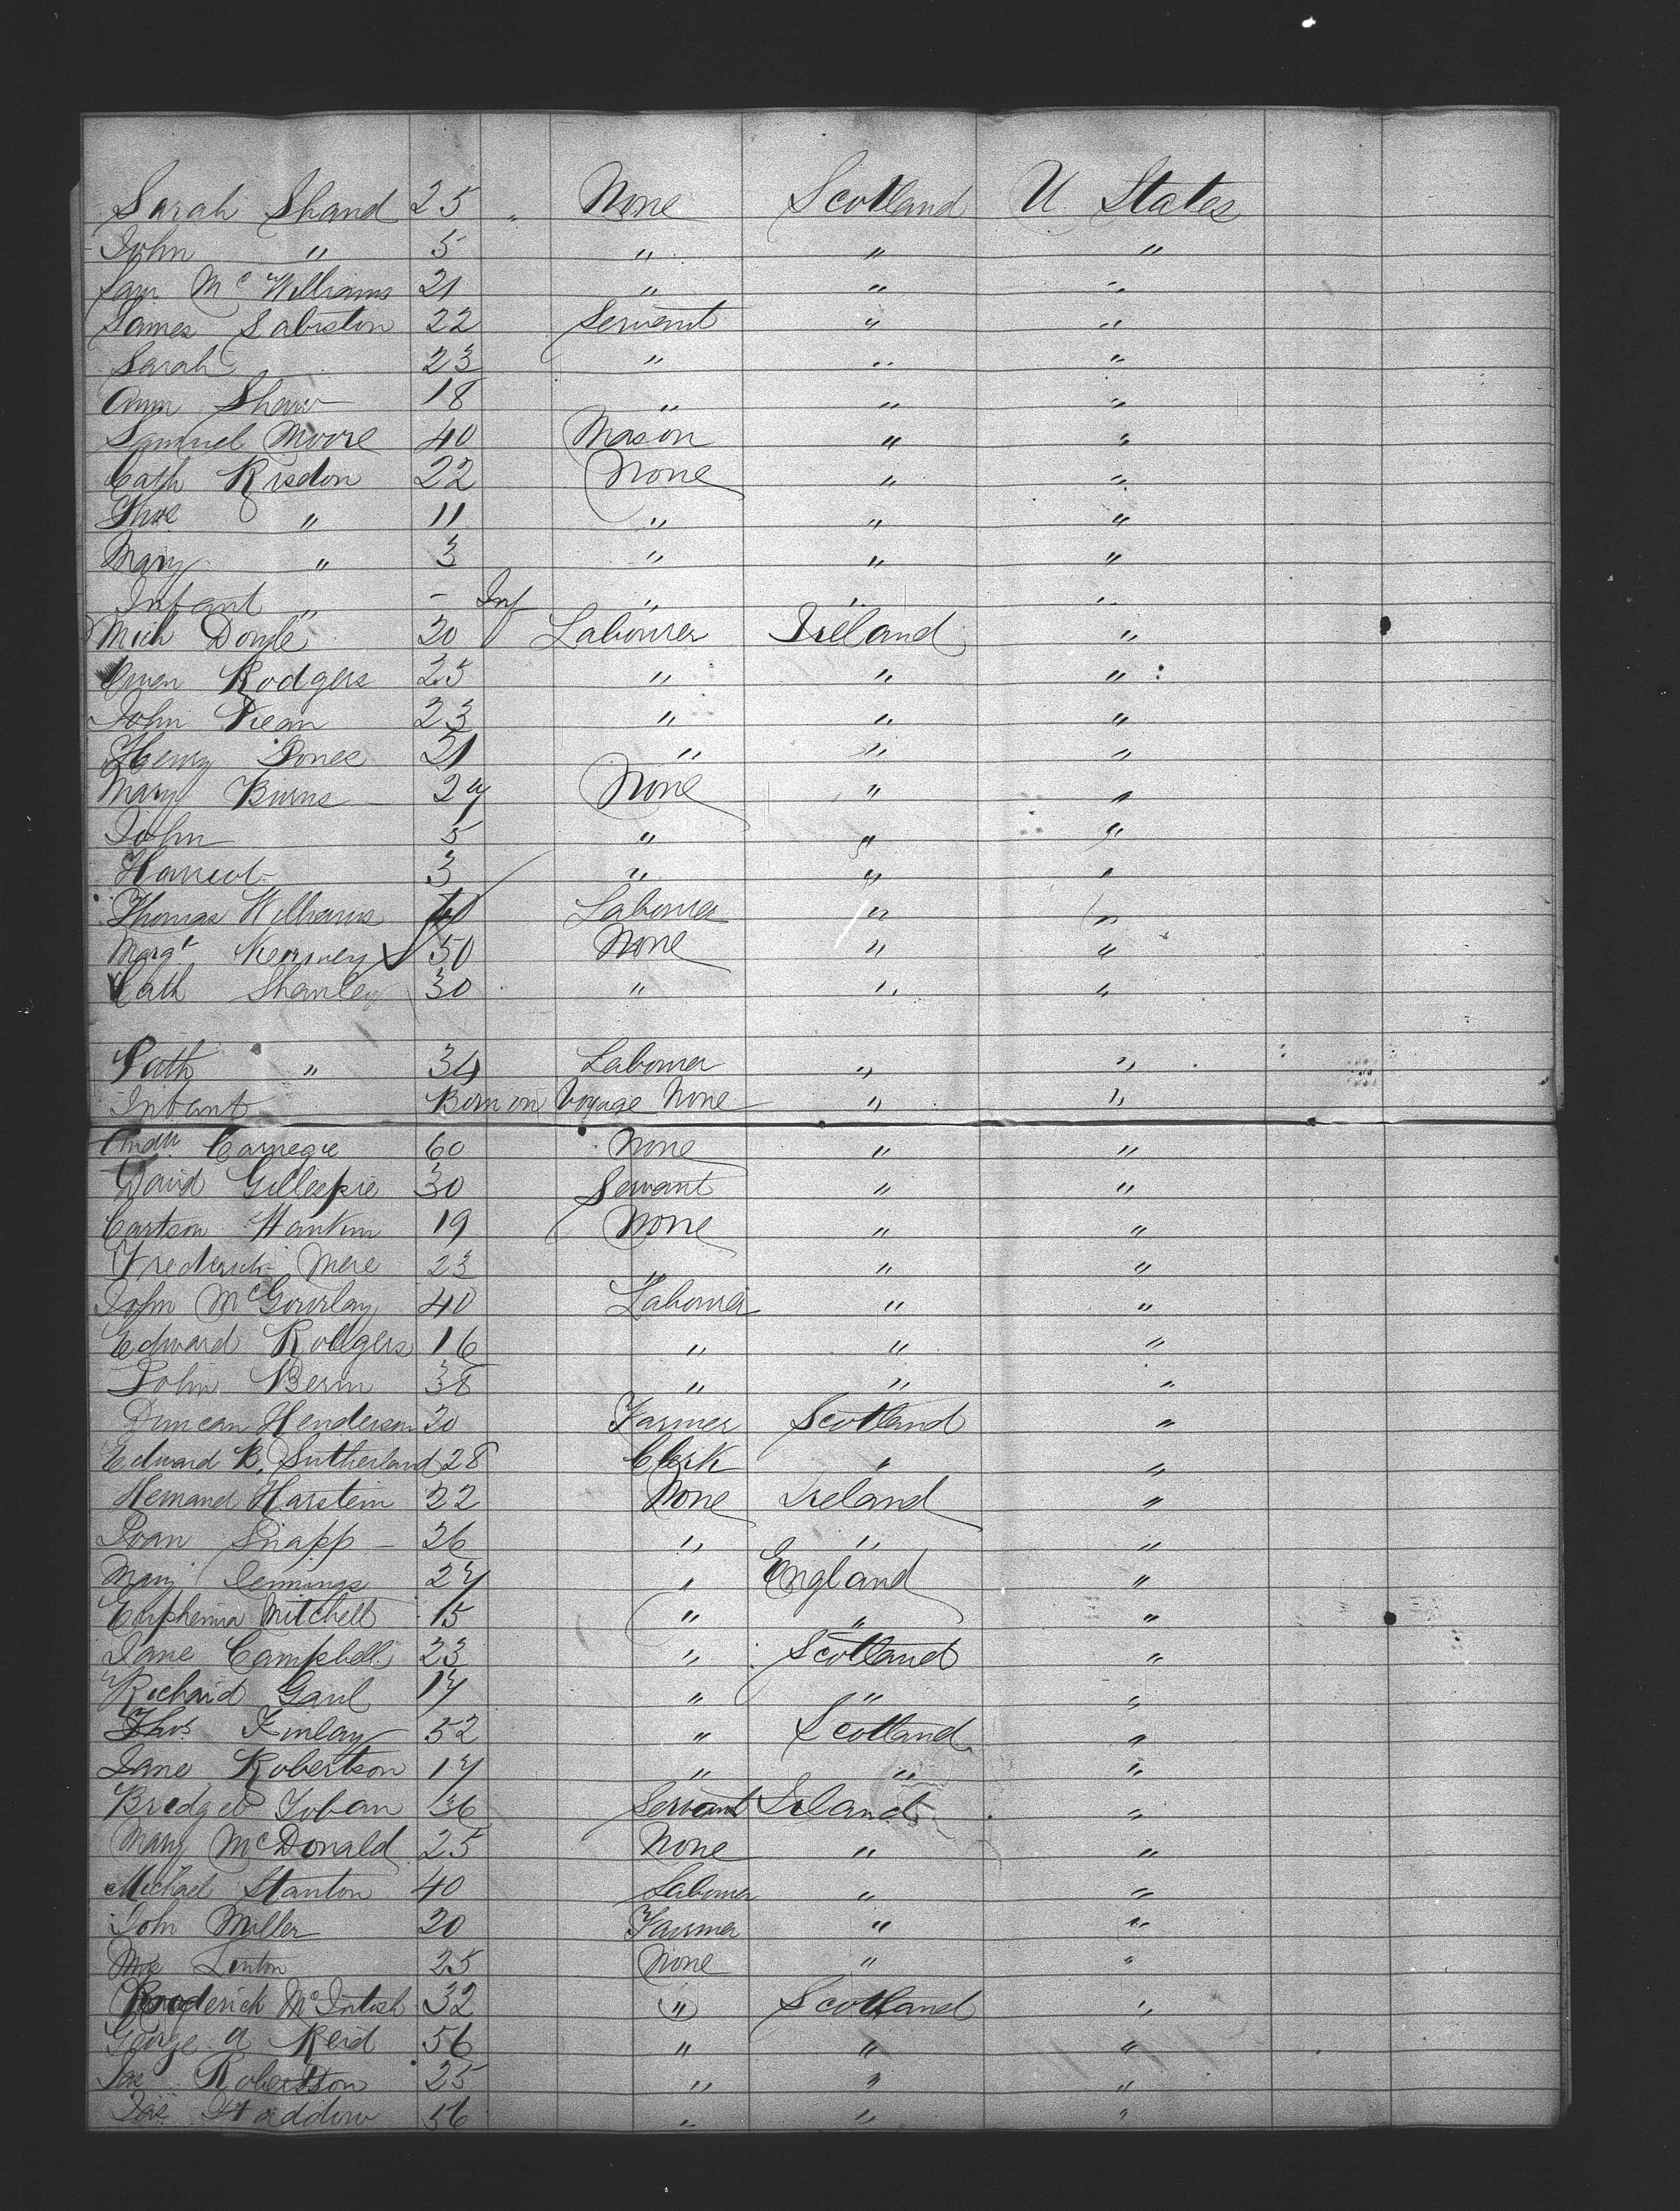 Sarah Shand 25 " None Scotland U. States
John " 5 " " "
Sam Mc Williams 21 " " "
James Sabiston 22 Servant " "
Sarah 23 " " "
Ann Shaw 18 " " "
Samuel Moore 40 Mason " "
Cath Risdon 22 None " "
Thos " 11 " " "
Mary " 3 " " "
Infant " - Inf " " "
Mich Doyle 20 Labourer Ireland "
Owen Rodgers 25 " " "
John Kean 23 " " "
Henry Jones 21 " " "
Mary Burns 27 None " "
John 5 " " "
Harriot 3 " " "
Thomas Williams 40 Labourer " "
Margt Kerney 50 None " "
Cath Shanley 30 " " "
Path " 34 Labourer " "
Infant Born on Voyage None " "
Andw Carnegie 60 None " "
David Gillespie 30 Servant " "
Cartson Hankin 19 None " "
Frederick Mere 23 " " "
John McGourlay 40 Labourer " "
Edward Rodgers 16 " " "
John Berin 38 " " "
Duncan Henderson 20 Farmer Scotland "
Edward B. Sutherland 28 Clerk " "
Hemand Harstein 22 None Ireland "
Joan Snapp 26 " " "
Mary Jennings 27 " England "
Euphemia Mitchell 15 " " "
Jane Campbell 23 " Scotland "
Richard Gaul 17 " " "
Thos Finlay 52 " Scotland "
Jane Robertson 17 " " "
Bredget Toban 36 Servant Ireland "
Mary McDonald 25 None " "
Michael Stanton 40 Labourer " "
John Miller 20 Farmer " "
Mrs Linton 25 None " "
Roderick McIntosh 32 " Scotland "
George A Reid 56 " " "
Jas Robertson 25 " " "
Jas Haddow 56 " " "